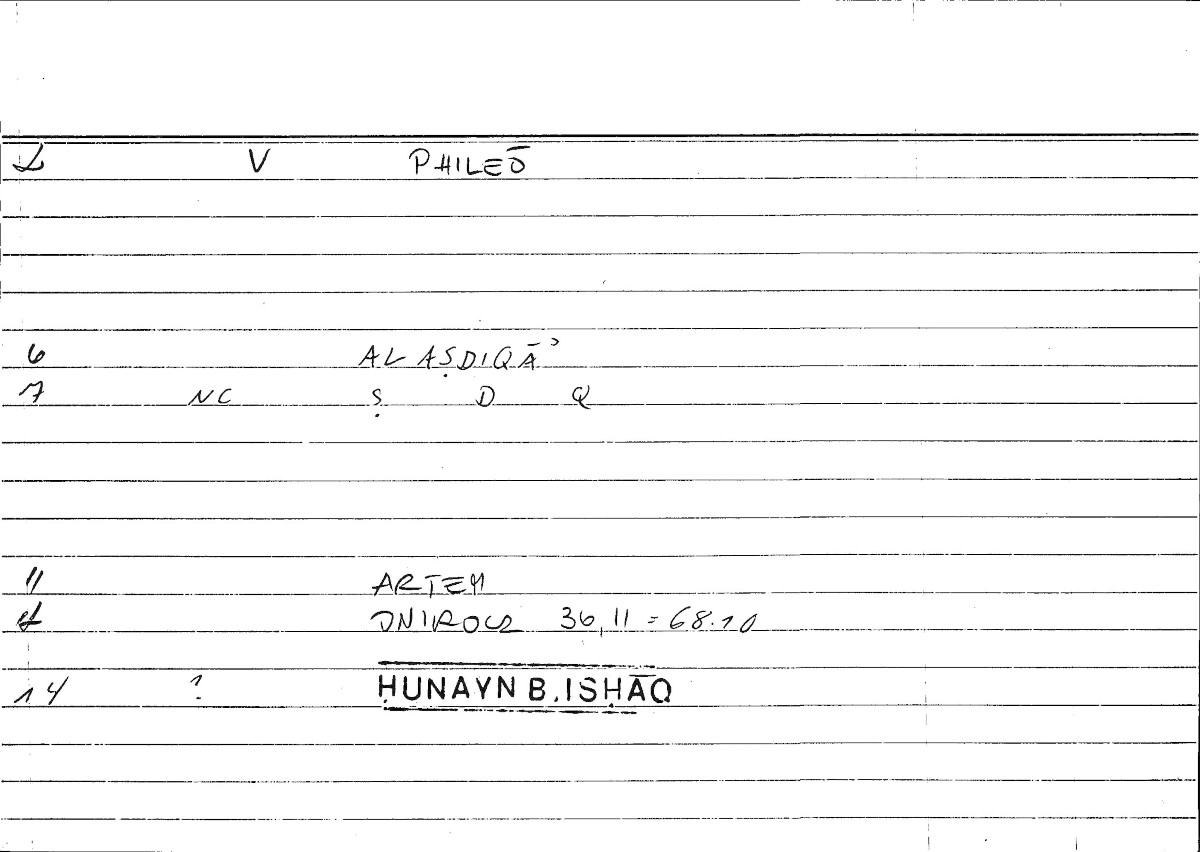 2 V PHILEŌ
6 AL AṢDIQĀʾ
7 NC Ṣ D Q
11 ARTEM
ONIROCR 36,11 = 68.10
14 ? ḤUNAYN B. ISḤĀQ